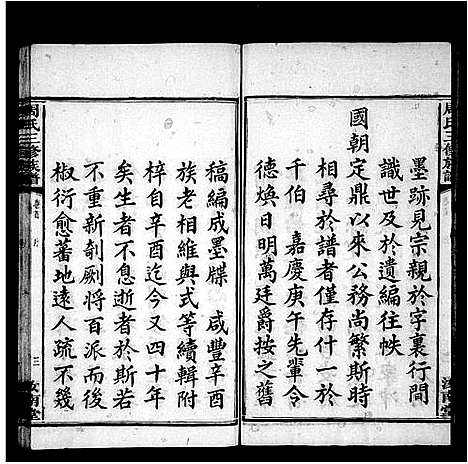 墨跡見宗親於字裏行間
識世及於遺編往帙
國朝定鼎以來公務尚繁斯時
相尋於譜者僅存什一於
千伯 嘉慶庚午先輩令
德煥日明萬廷爵按之舊
周氏三修族譜
汝南堂
稿編成墨牒 咸豐辛酉
族老相維與式等續輯附
梓自辛酉迄今又四十年
矣生者不息逝者於斯若
不重新剞劂將百派而後
椒衍愈蕃地遠人疏不幾
周氏三修族譜
卷首 序
三
汝南堂